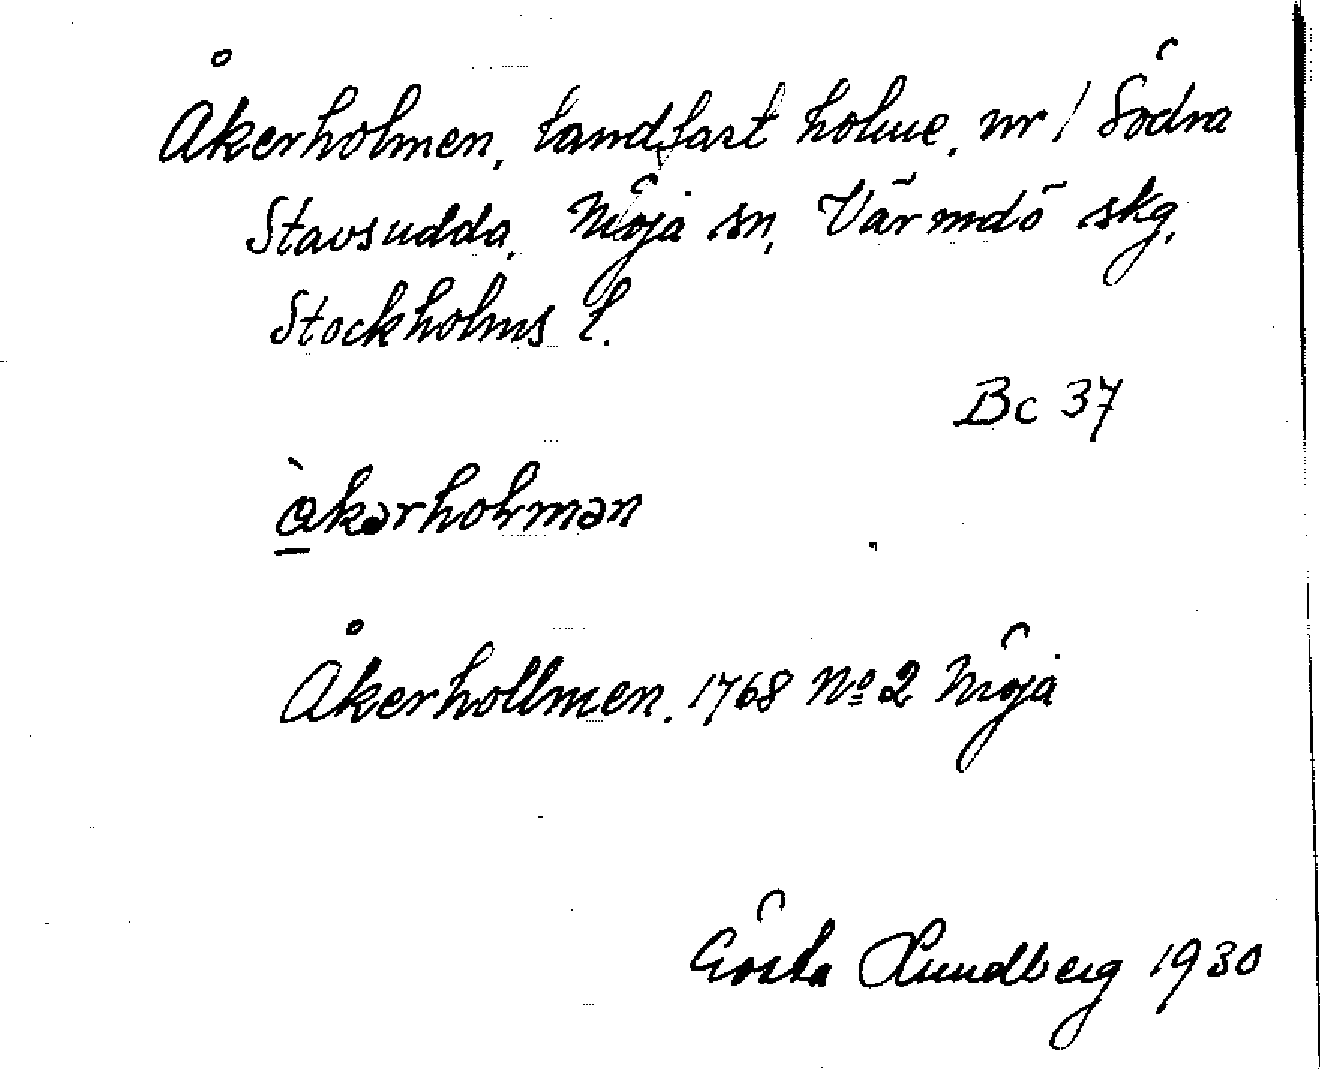 Åkerholmen, landfast holme, nr 1 Södra
Stavsudda, Möja sn, Värmdö skg,
Stockholms l.
Bc 37
ò̲kərhoɫmən
Åkerhollmen. 1768 Nº 2 Möja
Gösta Lundberg 1930